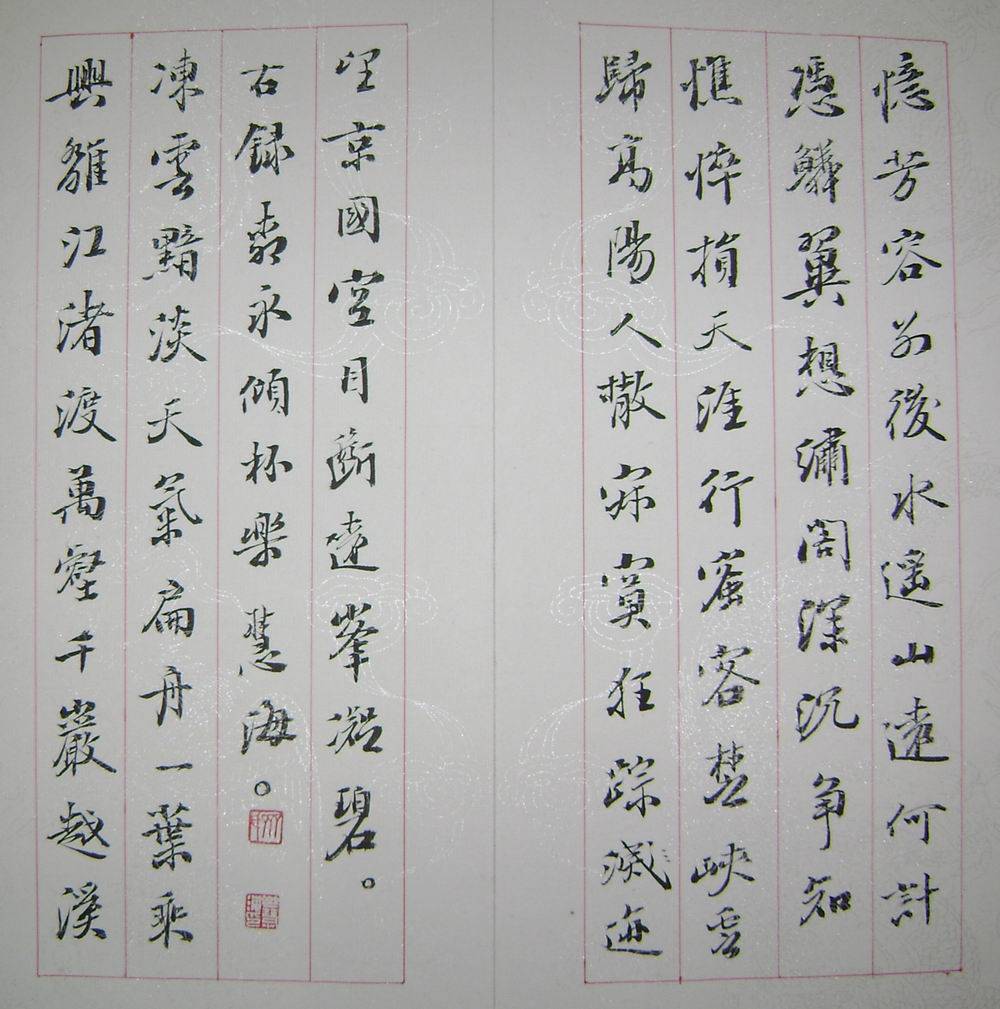 憶芳容别後水遥山遠何計
憑鱗翼想繡閣深沉争知
憔悴損天涯行客楚峽雲
歸高陽人散寂寞狂踪滅迹
望京國空目斷遠峯凝碧。
右録柳永傾杯樂 慧海。
凍雲黯淡天氣扁舟一葉乘
興離江渚渡萬壑千巖越溪